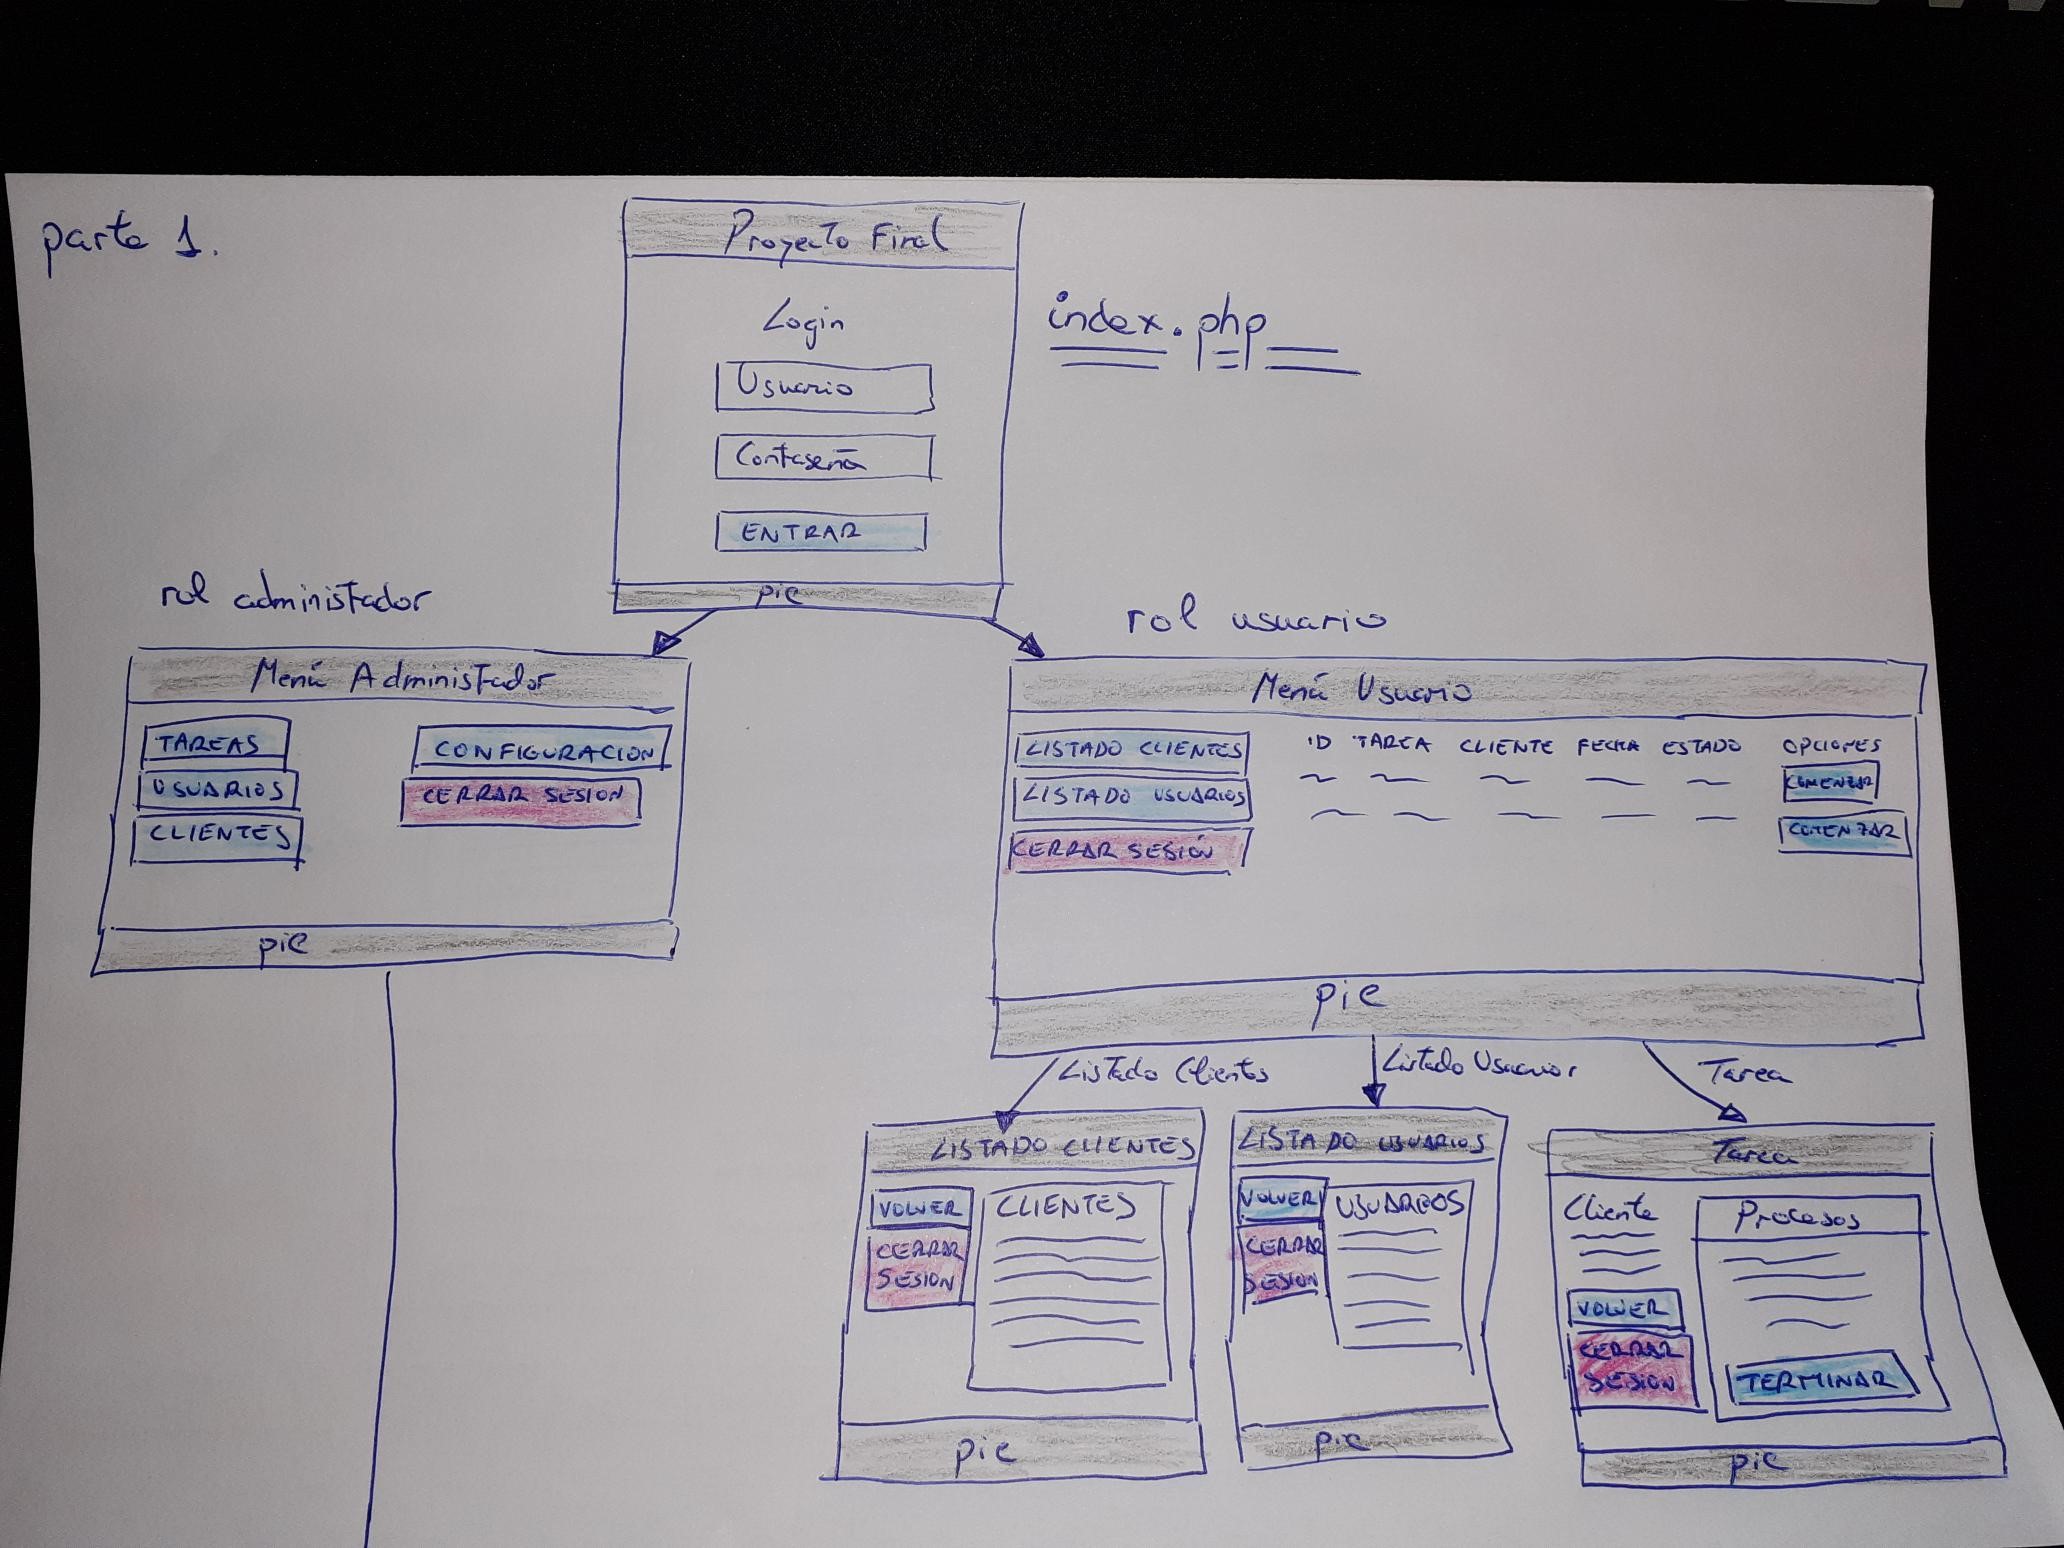 parte 1.
Proyecto Final
Login
Usuario
Contaseña
ENTRAR
pie
index.php
rol administador
Menú Administador
TAREAS
USUARIOS
CLIENTES
CONFIGURACION
CERRAR SESION
pie
rol usuario
Menú Usuario
LISTADO CLIENTES
LISTADO USUARIOS
CERRAR SESIÓN
ID TAREA CLIENTE FECHA ESTADO OPCIONES
COMENZAR
COMENZAR
pie
Listado Clientes
Listado Usuarios
Tarea
LISTADO CLIENTES
VOLVER
CERRAR
SESION
CLIENTES
pie
LISTADO USUARIOS
VOLVER
CERRAR
SESION
USUARIOS
pie
Tarea
Cliente
VOLVER
CERRAR
SESION
Procesos
TERMINAR
pie